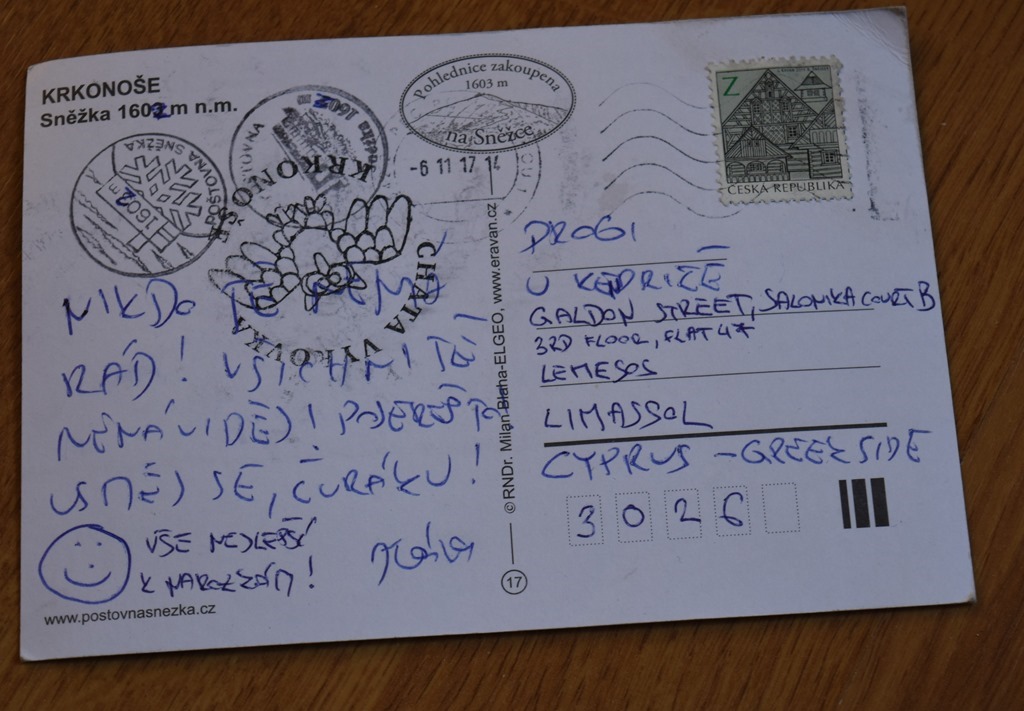 KRKONOŠE
Sněžka 1602 m n.m.
POŠTOVNA SNĚŽKA
1602 m
1602 m
Pohlednice zakoupena
1603 m
na Sněžce
-6 11 17 14
KRKONOŠE
CHATA VÝROVKA
Z
ČESKÁ REPUBLIKA
NIKDO TĚ NEMÁ
RÁD! VŠICHNI TĚ
NENÁVIDĚJ!
USMĚJ SE, ČURÁKU!
VŠE NEJLEPŠÍ
K NAROZENINÁM!
www.postovnasnezka.cz
© RNDr. Milan Blaha-ELGEO, www.eravan.cz
17
DROGI
U KEPRIZE
GALDON STREET, SALONIKA COURT B
3RD FLOOR, FLAT 47
LEMESOS
LIMASSOL
CYPRUS - GREEK SIDE
3 0 2 6